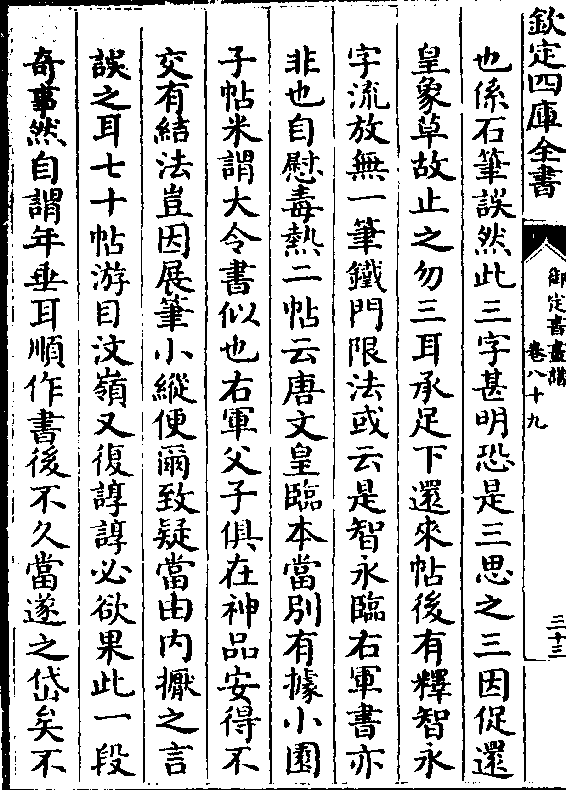 欽定四庫全書
御定書畫譜
卷八十九
三十三
也係石筆誤然此三字甚明恐是三思之三因促還
皇象草故止之勿三耳承足下還來帖後有釋智永
字流放無一筆鐵門限法或云是智永臨右軍書亦
非也自慰毒熱二帖云唐文皇臨本當别有據小園
子帖米謂大令書似也右軍父子俱在神品安得不
交有結法豈因展筆小縱便爾致疑當由内擫之言
誤之耳七十帖游目汶嶺又復諄諄必欲果此一段
奇事然自謂年垂耳順作書後不久當遂之岱矣不